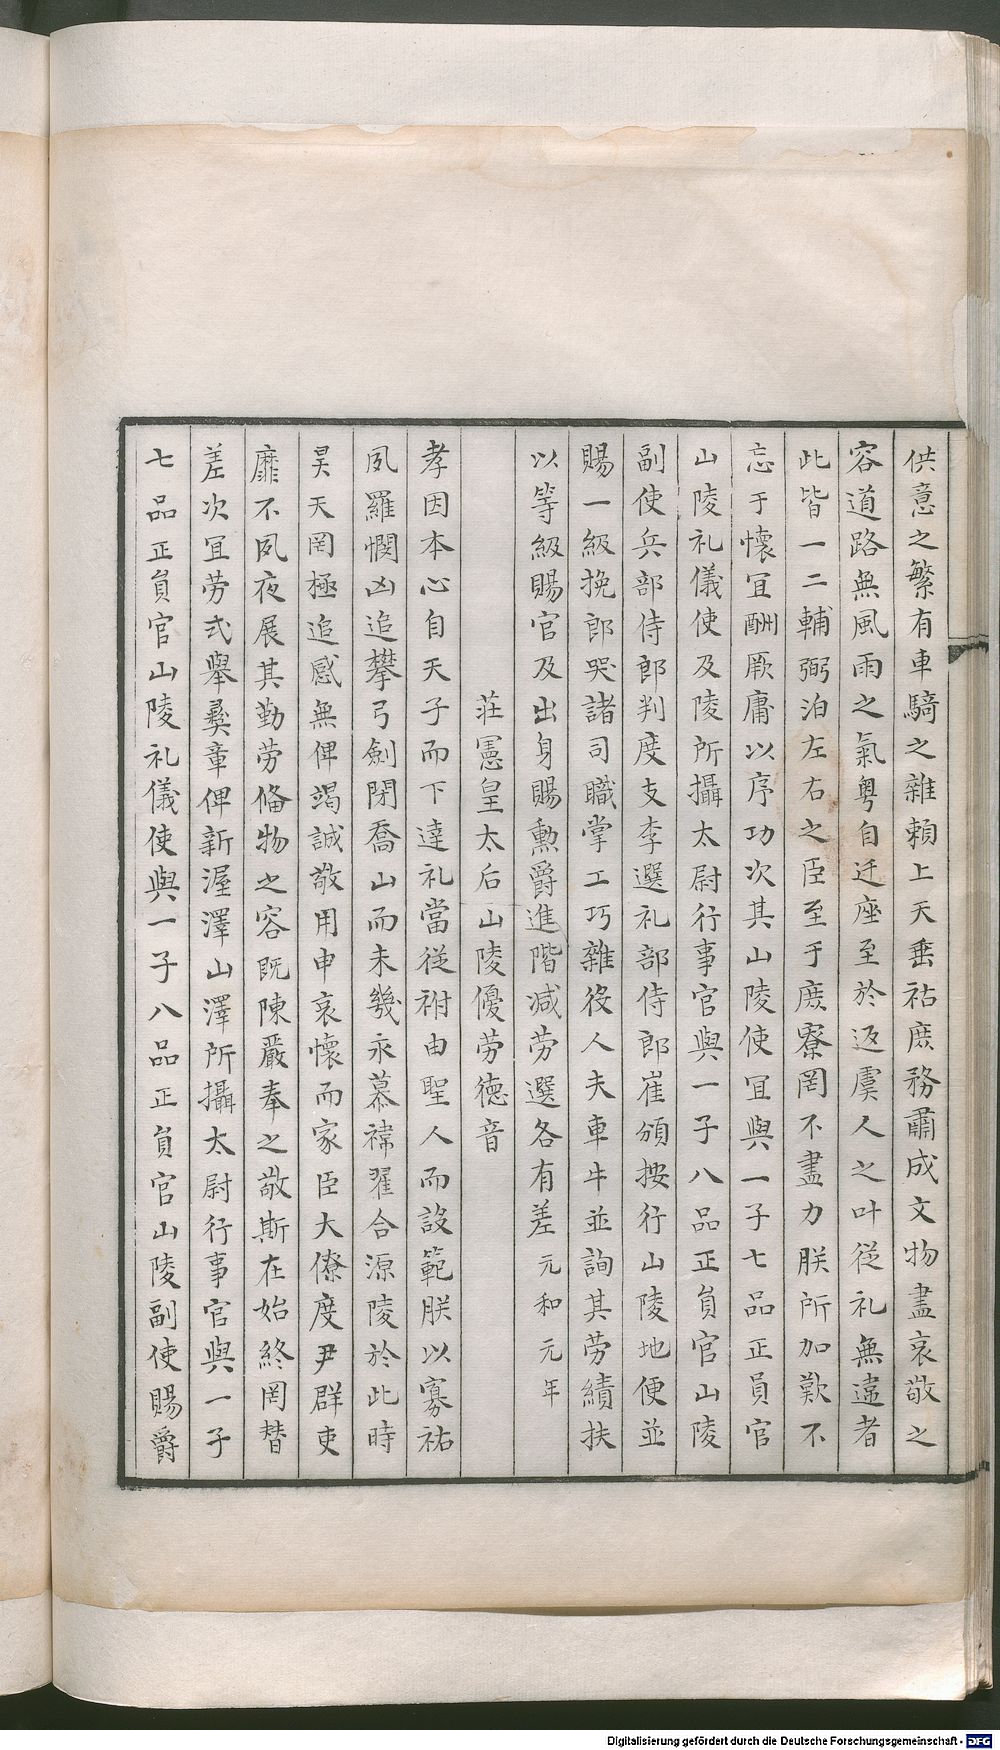 供意之繁有車騎之雜頼上天垂祐庶務肅成文物盡哀敬之
容道路無風雨之氣粤自迁座至於返虞人之叶從礼無違者
此皆一二輔弼泊左右之臣至于庶寮罔不盡力朕所加歎不
忘于懷宜酬厥庸以序功次其山陵使宜與一子七品正員官
山陵礼儀使及陵所攝太尉行事官與一子八品正員官山陵
副使兵部侍郎判度支李選礼部侍郎崔頒按行山陵地便並
賜一級挽郎哭諸司職掌工巧雜役人夫車牛並詢其劳績扶
以等級賜官及出身賜勲爵進階減劳選各有差元和元年
莊憲皇太后山陵優劳德音
孝因本心自天子而下達礼當從祔由聖人而設範朕以寡祐
夙羅憫凶追攀弓劍閉喬山而未幾永慕褘翟合源陵於此時
昊天罔極追感無俾竭誠敬用申哀懷而家臣大僚度尹群吏
靡不夙夜展其勤劳俻物之容既陳嚴奉之敬斯在始終罔替
差次宜劳式舉彝章俾新渥澤山澤所攝太尉行事官與一子
七品正員官山陵礼儀使與一子八品正員官山陵副使賜爵
Digitalisierung gefördert durch die Deutsche Forschungsgemeinschaft - DFG